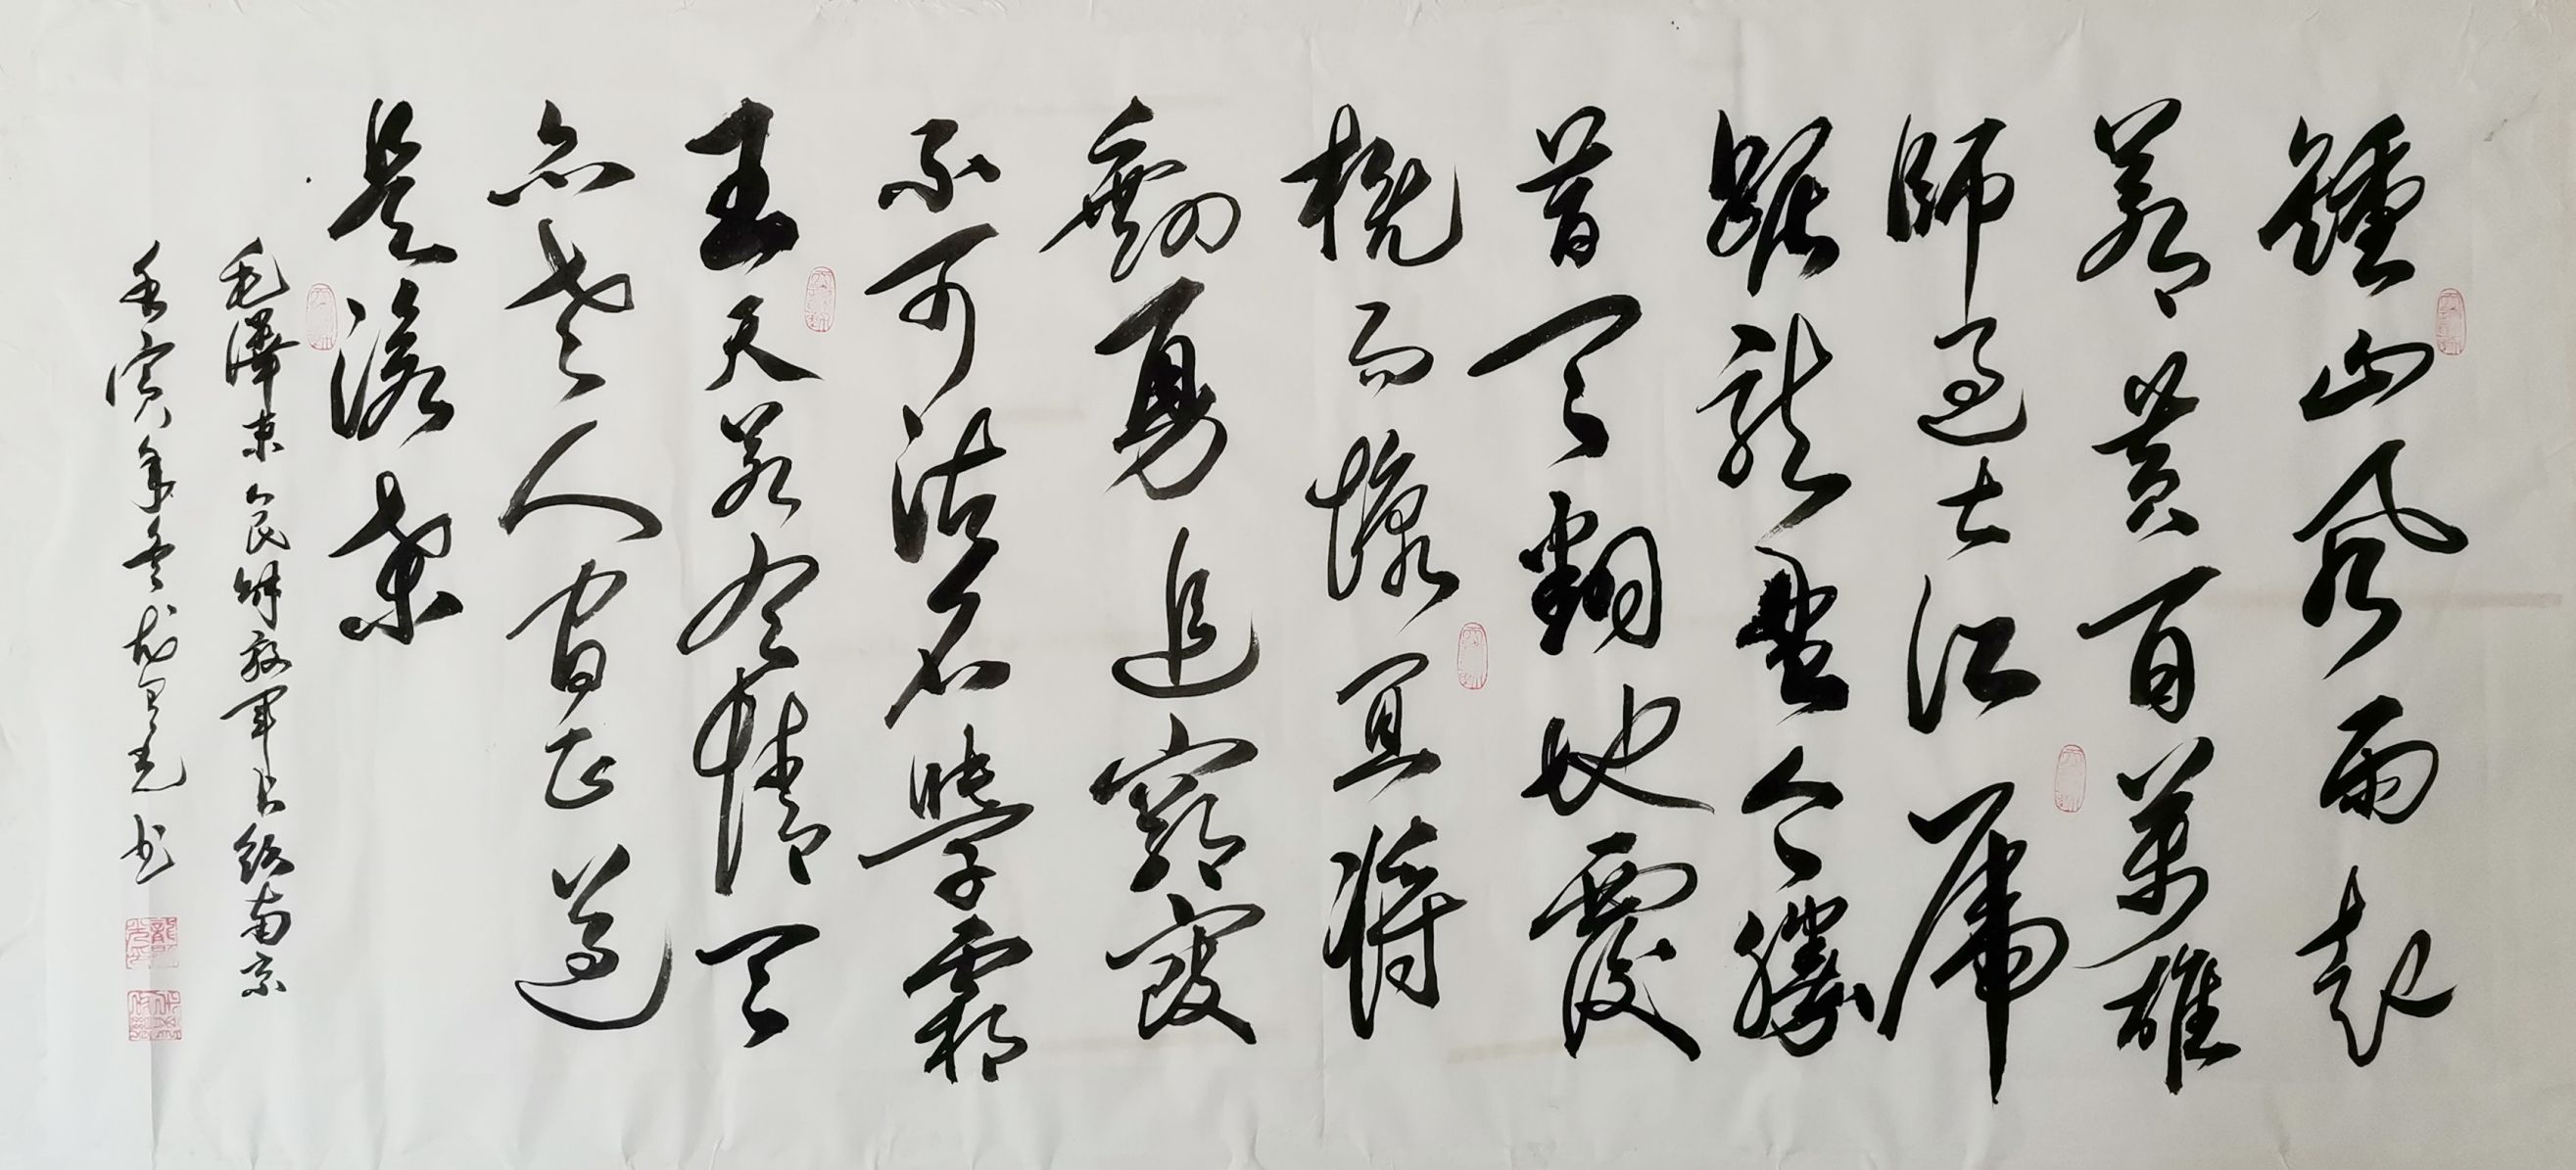 鍾山风雨起
蒼黄百萬雄
師过大江虎
踞龍盤今勝
昔天翻地覆
慨而慷宜將
剩勇追窮寇
不可沽名學霸
王天若有情天
亦老人间正道
是滄桑
毛澤東人民解放軍占领南京
壬寅年冬书